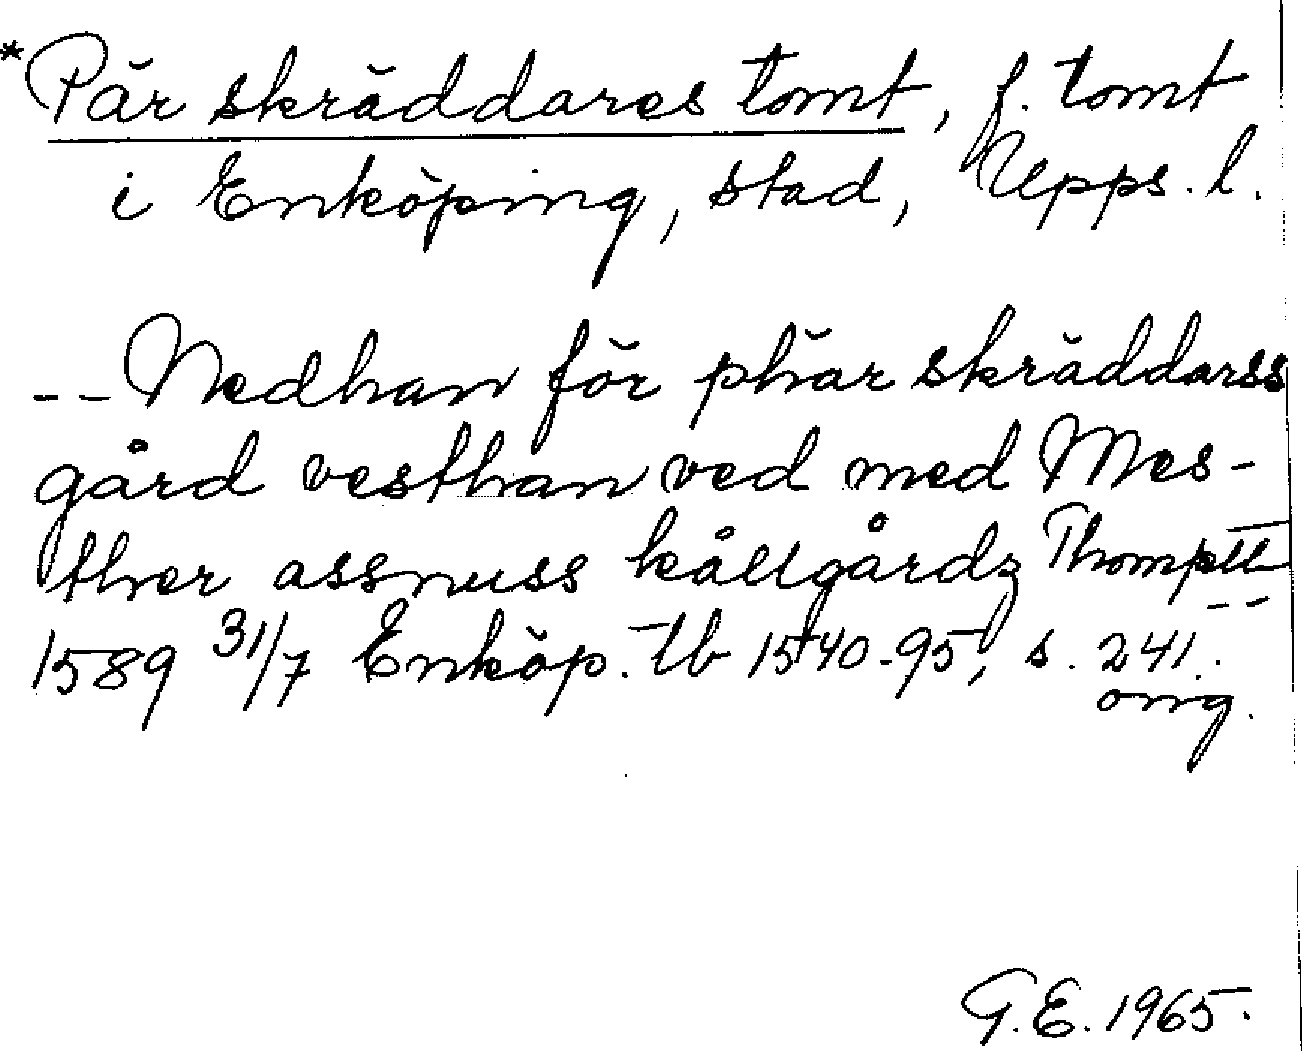 *Pär skräddares tomt, f. tomt
i Enköping, stad, Upps. l.
-- Nedhan för phär skräddarss
gård vesthan ved med Mes-
ther assmuss kållgårdz Thompt
--
1589 31/7 Enköp. Tb 1540-95, s. 241.
orig.
G.E. 1965.